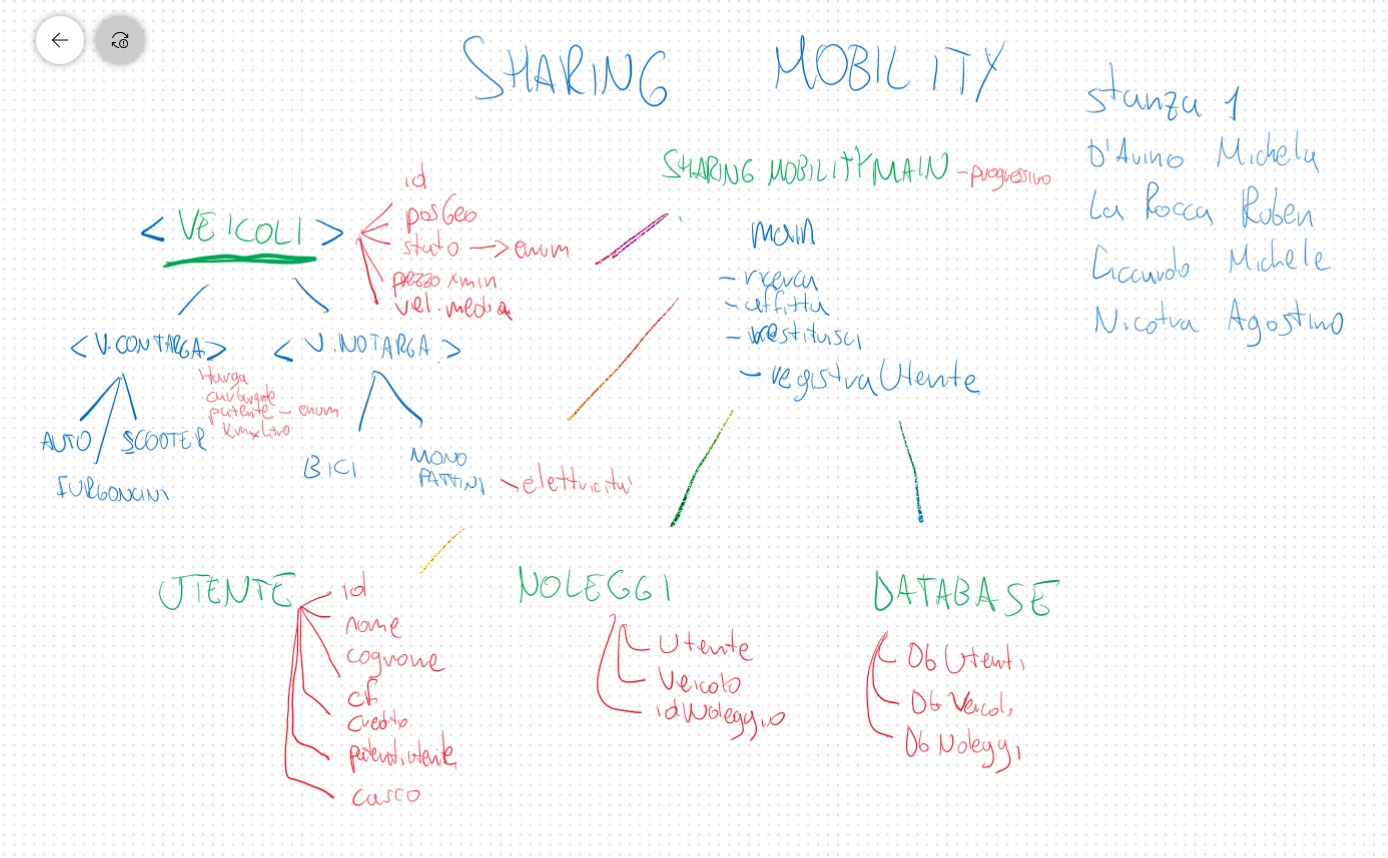 SHARING MOBILITY
stanza 1
D'Avino Michela
La Rocca Ruben
Ciccardo Michele
Nicotra Agostino
SHARING MOBILITY MAIN - progressivo
main
- ricerca
- affitta
- restituisci
- registraUtente
< VEICOLI >
id
posGeo
stato -> enum
prezzo x min
vel. media
< V. CON TARGA >
< V. NO TARGA >
targa
carburante
patente - enum
Kmxlitro
AUTO
SCOOTER
FURGONCINI
BICI
MONO
PATTINI
elettricita'
UTENTE
id
nome
cognome
cf
credito
patenti utente
casco
NOLEGGI
Utente
Veicolo
idNoleggio
DATABASE
Db Utenti
Db Veicoli
Db Noleggi